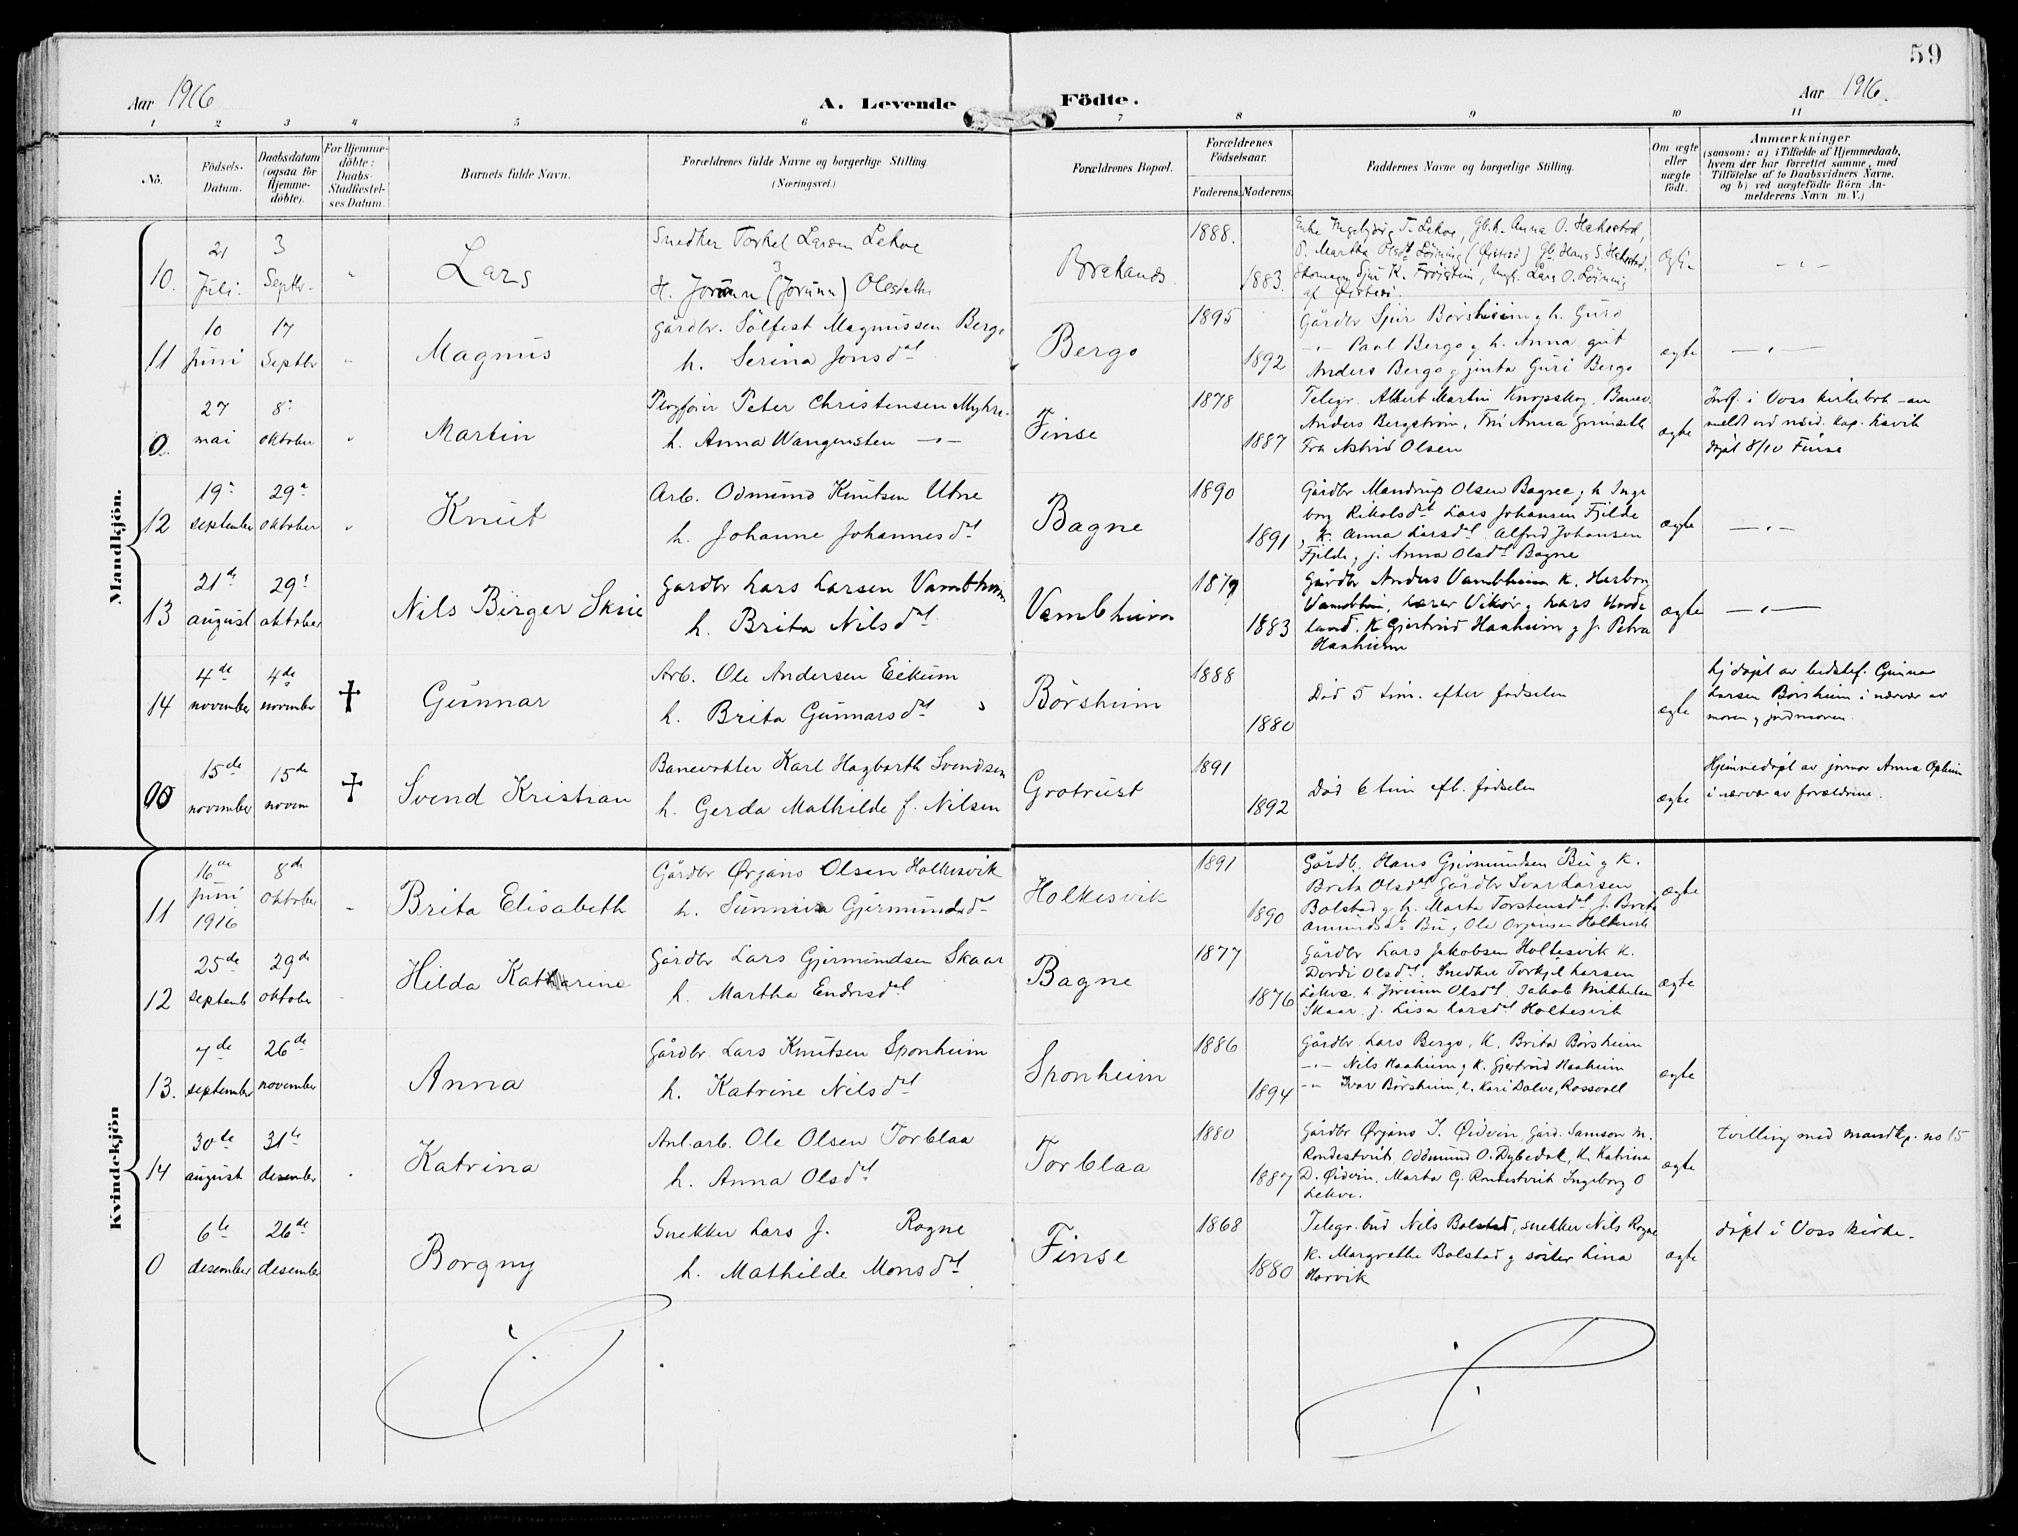 59
Aar 1916
A. Levende Födte.
Aar 1916.
1 2 3 4 5 6 7 8 9 10 11
No.
Födsels-Datum.
Daabsdatum (ogsaa for Hjemmedöbte).
For Hjemmedöbte: Daabs-Stadfæstelses Datum.
Barnets fulde Navn.
Forældrenes fulde Navne og borgerlige Stilling.
(Næringsvei.)
Forældrenes Bopæl.
Forældrenes Födselsaar.
Faderens. Moderens.
Faddernes Navne og borgerlige Stilling.
Om ægte eller uægte födt.
Anmærkninger
(saasom: a) i Tilfælde af Hjemmedaab, hvem der har forrettet samme, med Tilföielse af to Daabsvidners Navne, og b) ved uægtefödte Börn Anmelderens Navn m. V.)
Mandkjön.
10. 21 Juli. 3 Septbr. Lars
Snedker Torkel Larsen Lekve
H. (Jorunn)
1888. 1883.
11 10 Juni 17 Septbr Magnus
Gårdbr. Sölfest Magnussen Berge
h. Serina Jonsdat
Bergo 1895 1892
Paul Bergo og h. Anna
Anders Bergo
ægte
0. 27 mai 8. oktober Martin
Peter Christensen Myhre
h. Anna Wangensten
Finse 1878 1887
Telegr. Albert Martin
Anders Bergström,
Fra Astrid Olsen
ægte
i Voss kirkebok
8/10 Finse
12 19. september 29. oktober Knut
Arb. Odmund Knutsen Utne
h. Johanne Johannesdat
Bagne 1890 1891
Gårdbr Mandrup Olsen Bagne
Lars Johansen Fjelde
K. Anna Larsdat. Alfred Johansen
Fjelde, j. Anna Olsdat Bagne
ægte
13 21de august 29. oktober Nils Birger Skrie
Gardbr Lars Larsen Vambheim
h. Brita Nilsdat
Vambheim 1879 1883
Gårdbr Anders Vambheim K. Herborg
K Gjertrud Haaheim og j. Petra
Haaheim
ægte
14 4de november 4de november † Gunnar
Arb. Ole Andersen Eikum
h. Brita Gunnarsdat
Börsheim 1888 1880
Död 5 tim. efter födselen
ægte
hj döpt av bedstef. Gunnar
Larsen Börsheim i nærvær av
moren og jordmoren.
00 15de november 15de novem † Svend Kristian
Banevokter Karl Hagbarth Svendsen
h. Gerda Mathilde f. Nilsen
Grotrust 1891 1892
Död 6 tim eft. födselen
ægte
Hjemmedöpt av jormor Anna Opheim
i nærvær av forældrene.
Kvindekjön
11 Juni 1916 8de oktober Brita Elisabeth
Gårdbr Ørjans Olsen Holkesvik
h. Gjermundsdat
Holkesvik 1891 1890
Gårdb. Hans Gjermundsen Bu og K.
Brita Olsdat Gårdbr Ivar Larsen
Bolstad og h. Marta Torstensdat j. Brita
ægte
12 25de septemb 29de oktobe Hilda Katharine
Gårdbr Lars Gjermundsen Skaar
h. Martha Endresdat
Bagne 1877 1876
Gårdbr Lars Jakobsen Holtesvik K.
Dordi Olsdat. Snedker Torkjel Larsen
Lekve h. Jorunn Olsdat. Jakob Mikkelsen
Skaar. j. Lisa Larsdat Holtesvik
ægte
13. 7de september 26de november Anna
Gårdbr Lars Knutsen Sponheim
h. Katrine Nilsdat
Sponheim 1886 1894
Gårdbr. Lars Bergo, K. Brita Börsheim
Nils Haaheim og K. Gjertrud Haaheim
Ivar Börsheim, h. Kari Dalve, Rossvoll
ægte
14 30te august 31te desember Katrina
Anl.arb. Ole Olsen Torblaa
h. Anna Olsdat
Torblaa 1880 1887
Gårdbr Ørjans J. Øidvin, Gård. Samson M.
Rondestveit Oddmund O. Dybedal, K. Katrina
D. Øidvin, Marta G. Rondestveit Ingeborg O
Lekve.
ægte
tvilling med mandkj. no 15
0 6te desember 26de desember Borgny
Snekker Lars J. Rogne
h. Mathilde Monsdat
Finse 1868 1880
Telegr.bud Nils Bolstad, snekker Nils Rogne
K. Margrethe Bolstad og söster Lina
Horvik
ægte
döpt i Voss kirke.